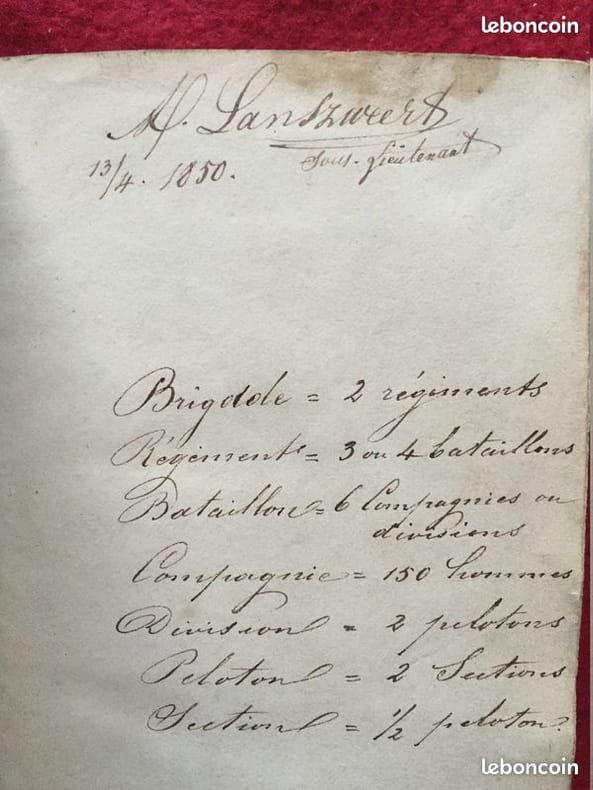 leboncoin
M. Lanszweert
13/4. 1850. Sous-Lieutenant
Brigade = 2 régiments
Régiment = 3 ou 4 bataillons
Bataillon = 6 Compagnies ou
divisions
Compagnie = 150 hommes
Division = 2 pelotons
Peloton = 2 Sections
Section = 1/2 peloton.
leboncoin